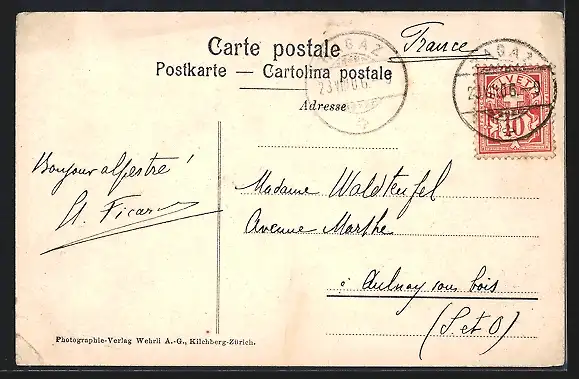 Carte postale
Postkarte — Cartolina postale
France
Adresse
RAGAZ
23 VII 06.
RAGAZ
23 VII 06.
HELVETIA
10
Bonjour alpestre!
Madame Waldteufel
Avenue Marthe
à Aulnay sous bois
(S. et O)
Photographie-Verlag Wehrli A.-G., Kilchberg-Zürich.